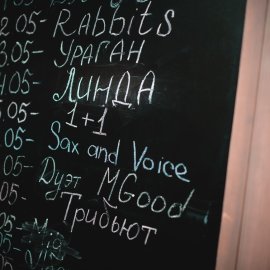 2.05- Rabbits
3.05- УРАГАН
4.05- ЛИНДА
5.05- 1+1
.05- Sax and Voice
.05- Дуэт MGood
05- Трибьют
05-